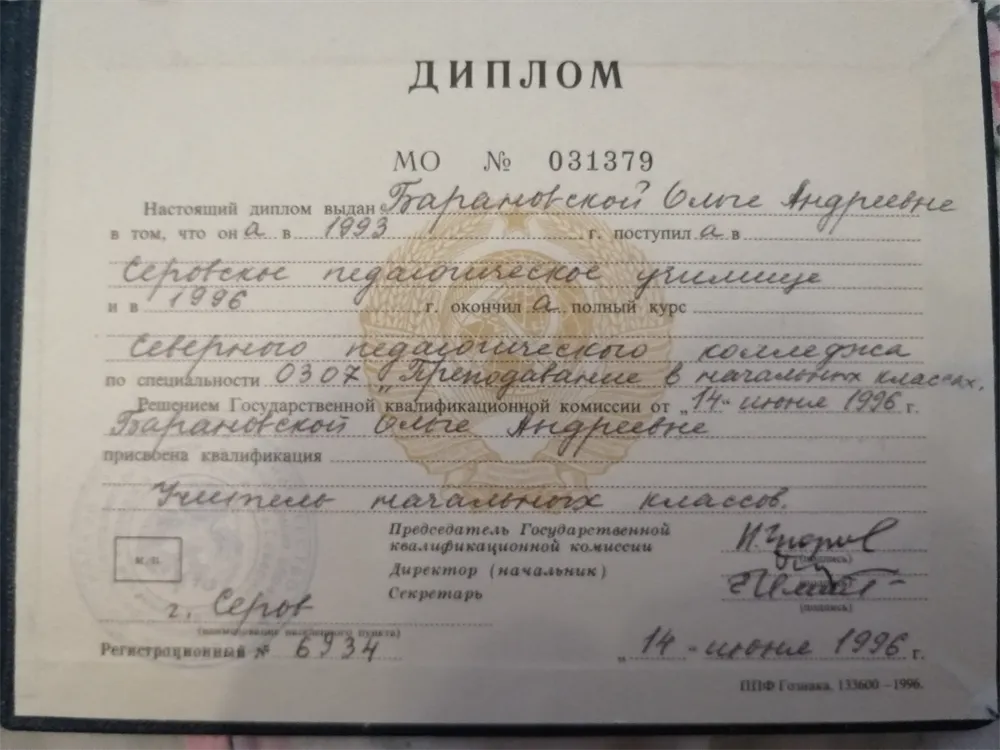 ДИПЛОМ
МО № 031379
Настоящий диплом выдан Барановской Ольге Андреевне
в том, что он а в 1993 г. поступил а в
Серовское педагогическое училище
и в 1996 г. окончил а полный курс
Северного педагогического колледжа
по специальности 0307 „Преподавание в начальных классах.
Решением Государственной квалификационной комиссии от „14" июня 1996 г.
Барановской Ольге Андреевне
присвоена квалификация
Учитель начальных классов.
Председатель Государственной
квалификационной комиссии
(подпись)
Директор (начальник)
Секретарь
(подпись)
М.П.
г. Серов
(наименование населенного пункта)
Регистрационный № 6934
„14 - июня 1996 г.
ППФ Гознака. 133600 – 1996.